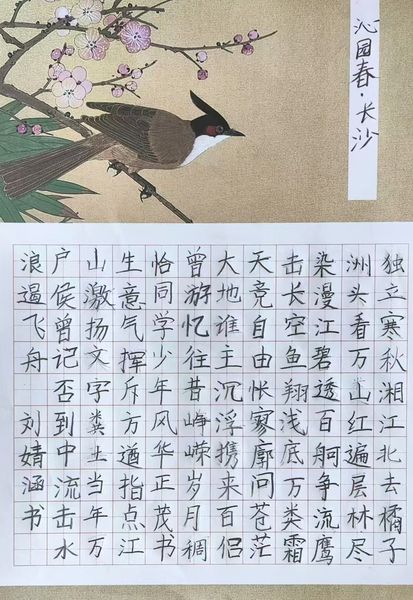 沁园春·长沙
独立寒秋湘江北去橘子
洲头看万山红遍层林尽
染漫江碧透百舸争流鹰
击长空鱼翔浅底万类霜
天竞自由怅寥廓问苍茫
大地谁主沉浮携来百侣
曾游忆往昔峥嵘岁月稠
恰同学少年风华正茂书
生意气挥斥方遒指点江
山激扬文字粪土当年万
户侯曾记否到中流击水
浪遏飞舟 刘婧涵书